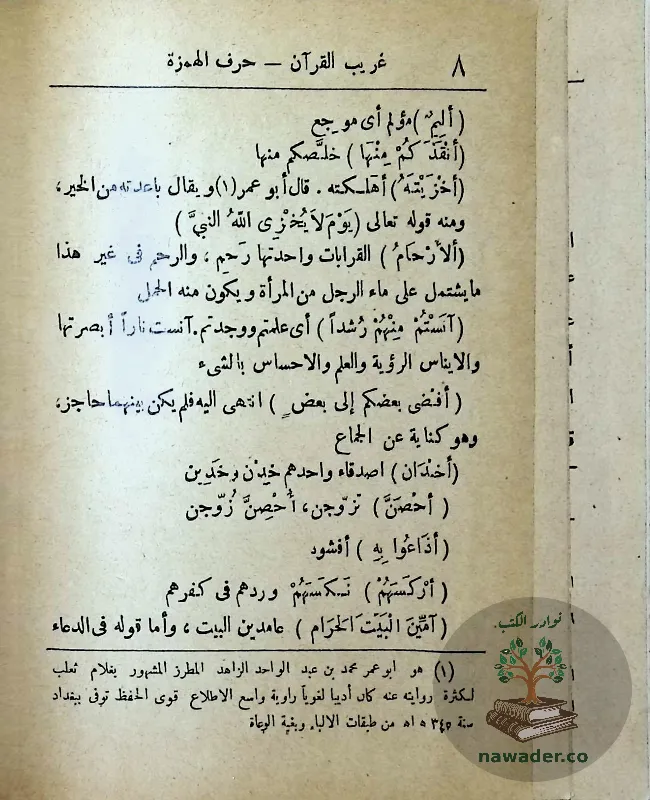 ٨ غريب القرآن — حرف الهمزة
( أَلِيمٌ ) مؤلم أى موجع
( أَنْقَذَكُمْ مِنْهَا ) خلَّصكم منها
( أَخْزَيْتَهُ ) أهلكته . قال أبو عمر (١) ويقال باعدته من الخير ،
ومنه قوله تعالى ( يَوْمَ لاَ يُخْزِى اللّٰهُ النبيَّ )
( ألأَرْحَامُ ) القرابات واحدتها رَحِم ، والرحم فى غير هذا
ما يشتمل على ماء الرجل من المرأة ويكون منه الحمل
( آنَسْتُمْ مِنْهُمْ رُشداً ) أى علمتم ووجدتم . آنست ناراً أبصرتها
والايناس الرؤية والعلم والاحساس بالشىء
( أفْضى بعضكم إلى بعض ) انتهى اليه فلم يكن بينهما حاجز ،
وهو كناية عن الجماع
( أخْدَان ) اصدقاء واحدهم خِدْن وخَدِين
( أحْصَنَّ ) تزوّجن ، أُحْصِنَّ زُوّجن
( أذَاعُوا بِهِ ) أفشوه
( أرْكَسَهُمْ ) نَكَسَهُمْ وردهم فى كفرهم
( آمِّينَ الْبَيْتَ الْحَرَام ) عامدين البيت ، وأما قوله فى الدعاء
(١) هو ابو عمر محمد بن عبد الواحد الزاهد المطرز المشهور بغلام ثعلب
لكثرة روايته عنه كان أديبا لغوياً راوية واسع الاطلاع قوى الحفظ توفى ببغداد
سنة ٣٤٥ ه اه من طبقات الالباء وبغية الوعاة
نوادر الكتب.
nawader.co